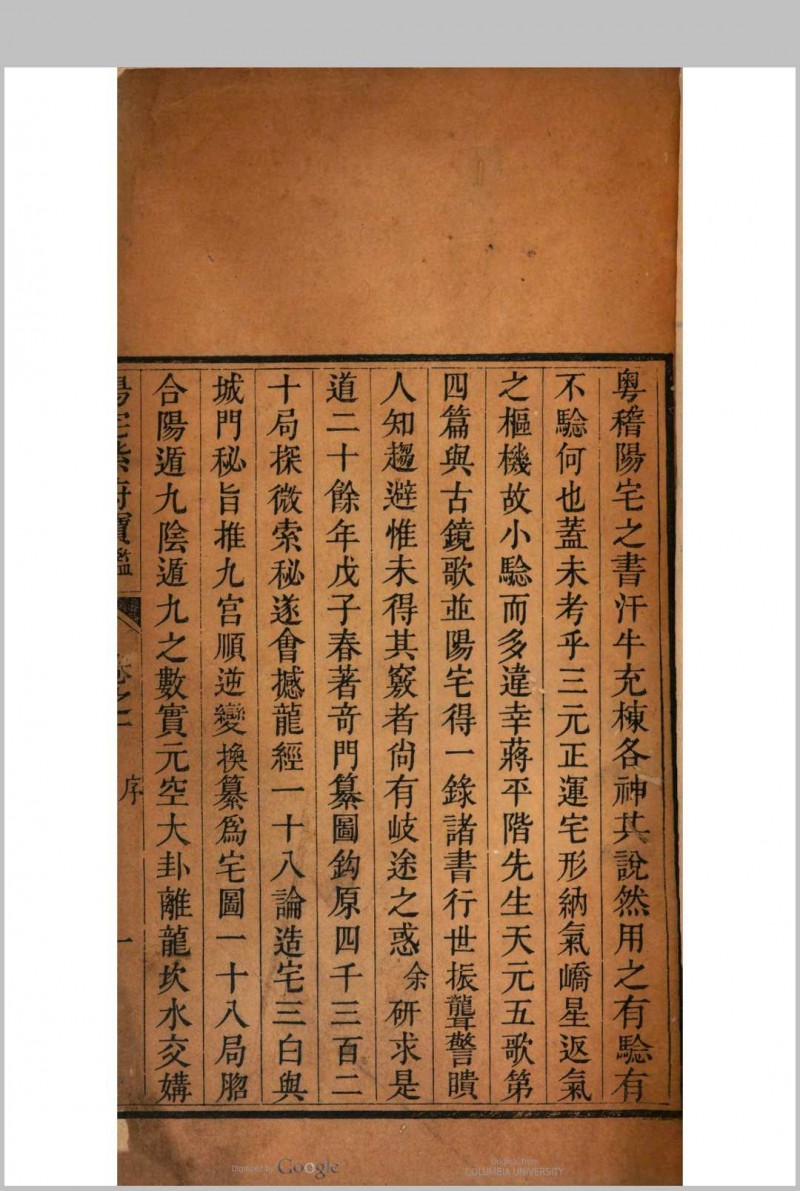 粤稽陽宅之書汗牛充棟各神其說然用之有驗有
不驗何也蓋未考乎三元正運宅形納氣嶠星返氣
之樞機故小驗而多違幸蔣平階先生天元五歌第
四篇與古鏡歌並陽宅得一錄諸書行世振聾警聵
人知趨避惟未得其竅者尙有岐途之惑余研求是
道二十餘年戊子春著奇門纂圖鈎原四千三百二
十局探微索秘遂會撼龍經一十八論造宅三白與
城門秘旨推九宮順逆變換纂爲宅圖一十八局脗
合陽遁九陰遁九之數實元空大卦離龍坎水交媾
陽宅紫府寶鑑 卷之一 序 一
Digitized by Google
Original from
COLUMBIA UNIVERSITY